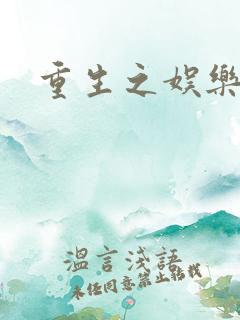 重生之娛樂
溫言淺語
未经同意禁止转载